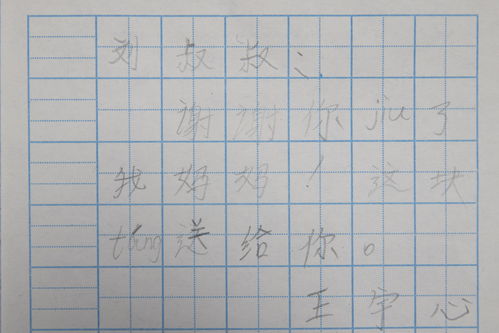 刘叔叔:
谢谢你jiu了
我妈妈！这块
táng送给你。
王宇心